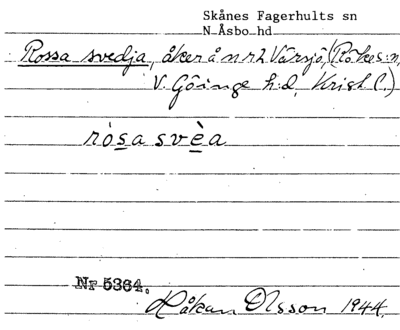 Skånes Fagerhults sn
N Åsbo hd
Rossa svedja, åker å nr 2 Värsjö, (Röke s:n,
V. Göinge h:d, Krist l.)
rósa svèa
Nr 5364.
Håkan Olsson 1944.